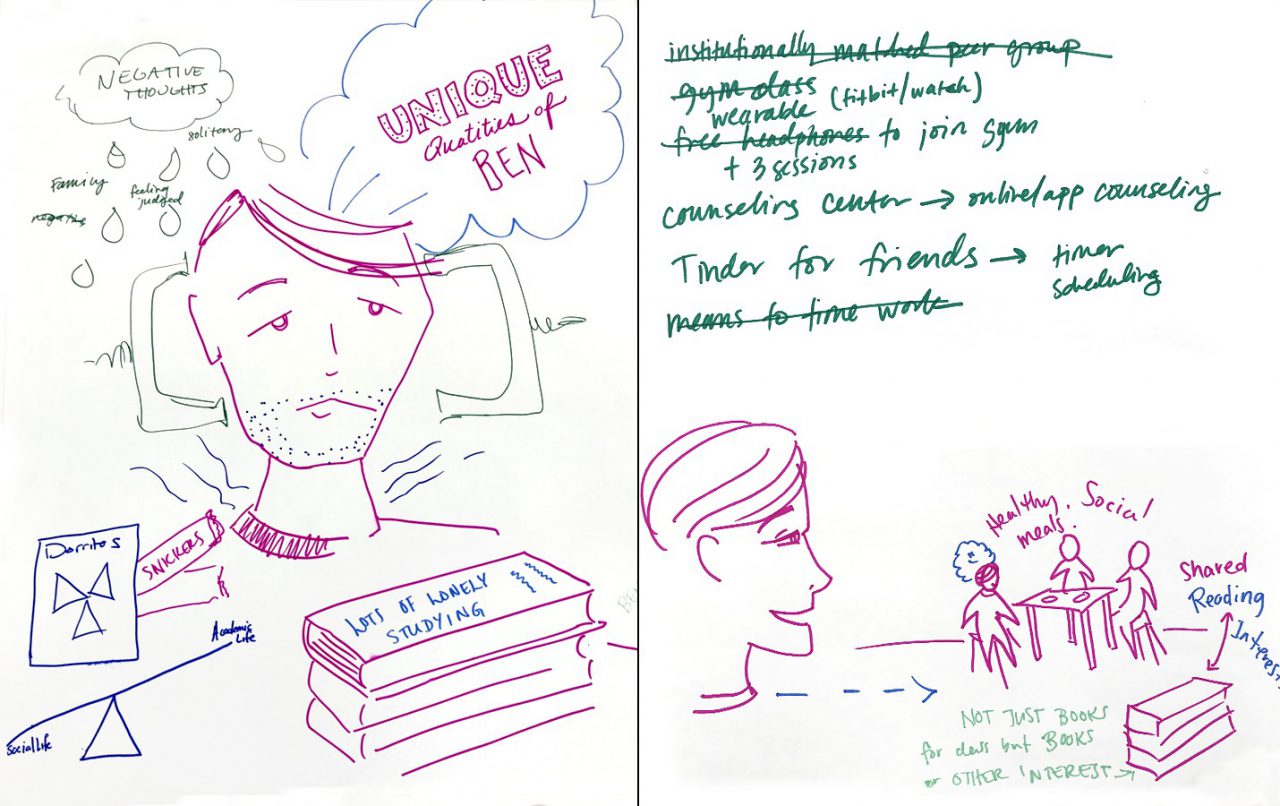 NEGATIVE
THOUGHTS
solitary
Family
feeling
judged
negative
UNIQUE
Qualities of
BEN
Dorritos
SNICKERS
Academic
Life
Social Life
LOTS OF LONELY
STUDYING
institutionally matched peer group
gym class
wearable (fitbit/watch)
free headphones to join gym
+ 3 sessions
counseling center → online/app counseling
Tinder for friends → timer
scheduling
means to time work
Healthy, Social
meals.
Shared
Reading
Interest
NOT JUST BOOKS
for class but BOOKS
or OTHER INTEREST →